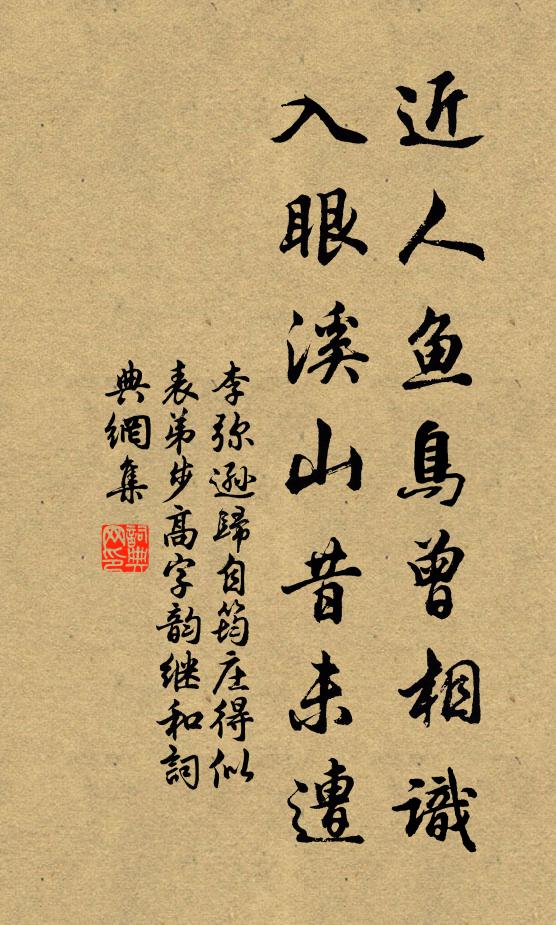 近人魚鳥曾相識
入眼溪山昔未遭
李弥遜歸自筠庄得似
表弟步高字韵继和詞
典網集
詞典
网印